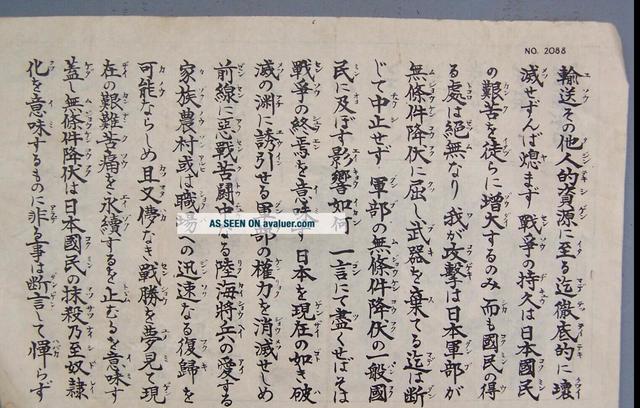 NO. 2088
輸送その他人的資源に至る迄徹底的に壊
滅せずんば熄まず 戰爭の持久は日本國民
の艱苦を徒らに增大するのみ 而も國民の得
る處は絕無なり 我が攻撃は日本軍部が
無條件降伏に屈し武器を棄てる迄は断
じて中止せず 軍部の無條件降伏の一般國
民に及ぼす影響如何 一言にて盡くせばそは
戰爭の終焉を意味す 日本を現在の如き破
滅の淵に誘引せる軍部の權力を消滅せしめ
前線に惡戰苦鬪中なる陸海將兵の愛する
家族農村或は職場への迅速なる復歸を
可能ならしめ且又儚なき戰勝を夢見て現
在の艱難苦痛を永續するを止むるを意味す
蓋し無條件降伏は日本國民の抹殺乃至奴隷
化を意味するものに非る事は断言して憚らず
AS SEEN ON avaluer.com